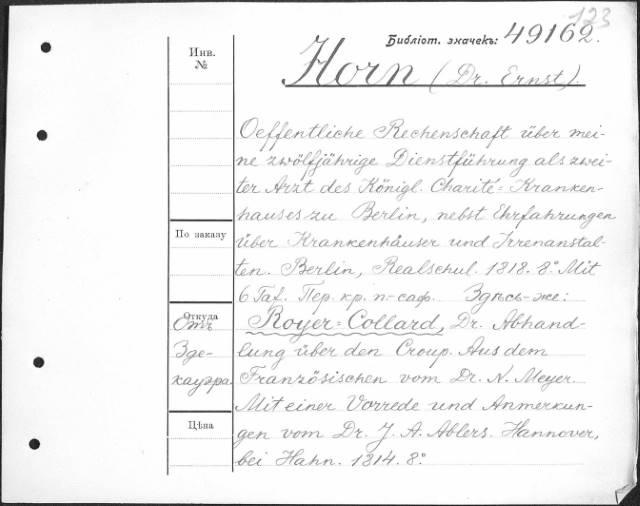 123
Библіот. значекъ: 49162.
Инв.
№
Horn (Dr. Ernst).
Oeffentliche Rechenschaft über mei-
ne zwölfjährige Dienstführung als zwei-
ter Arzt des Königl. Charité-Kranken-
hauses zu Berlin, nebst Ehrfahrungen
По заказу
über Krankenhäuser und Irrenanstal-
ten. Berlin, Realschul. 1818. 8.º Mit
6 Taf. Пер. кр. п.-саф. Здѣсь-же:
Откуда
Отъ
Зде-
кауэра.
Royer-Collard, Dr. Abhand-
lung über den Croup. Aus dem
Französischen vom Dr. N. Meyer.
Mit einer Vorrede und Anmerkun-
Цѣна
gen vom Dr. J. A. Ablers. Hannover,
bei Hahn. 1814. 8.º